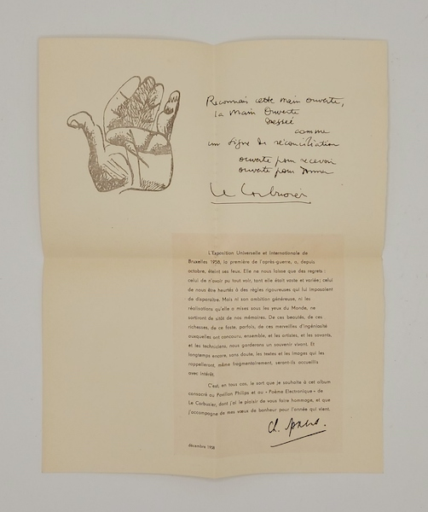 Reconnais cette main ouverte,
la Main Ouverte
dressée
comme
un signe de réconciliation
ouverte pour recevoir
ouverte pour donner
Le Corbusier
L'Exposition Universelle et Internationale de
Bruxelles 1958, la première de l'après-guerre, a, depuis
octobre, éteint ses feux. Elle ne nous laisse que des regrets :
celui de n'avoir pu tout voir, tant elle était vaste et variée; celui
de nous être heurtés à des règles rigoureuses qui lui imposaient
de disparaître. Mais ni son ambition généreuse, ni les
réalisations qu'elle a mises sous les yeux du Monde, ne
sortiront de sitôt de nos mémoires. De ces beautés, de ces
richesses, de ce faste, parfois, de ces merveilles d'ingéniosité
auxquelles ont concouru, ensemble, et les artistes, et les savants,
et les techniciens, nous garderons un souvenir vivant. Et
longtemps encore, sans doute, les textes et les images qui les
rappelleront, même fragmentairement, seront-ils accueillis
avec intérêt.
C'est, en tout cas, le sort que je souhaite à cet album
consacré au Pavillon Philips et au « Poème Electronique » de
Le Corbusier, dont j'ai le plaisir de vous faire hommage, et que
j'accompagne de mes vœux de bonheur pour l'année qui vient.
décembre 1958